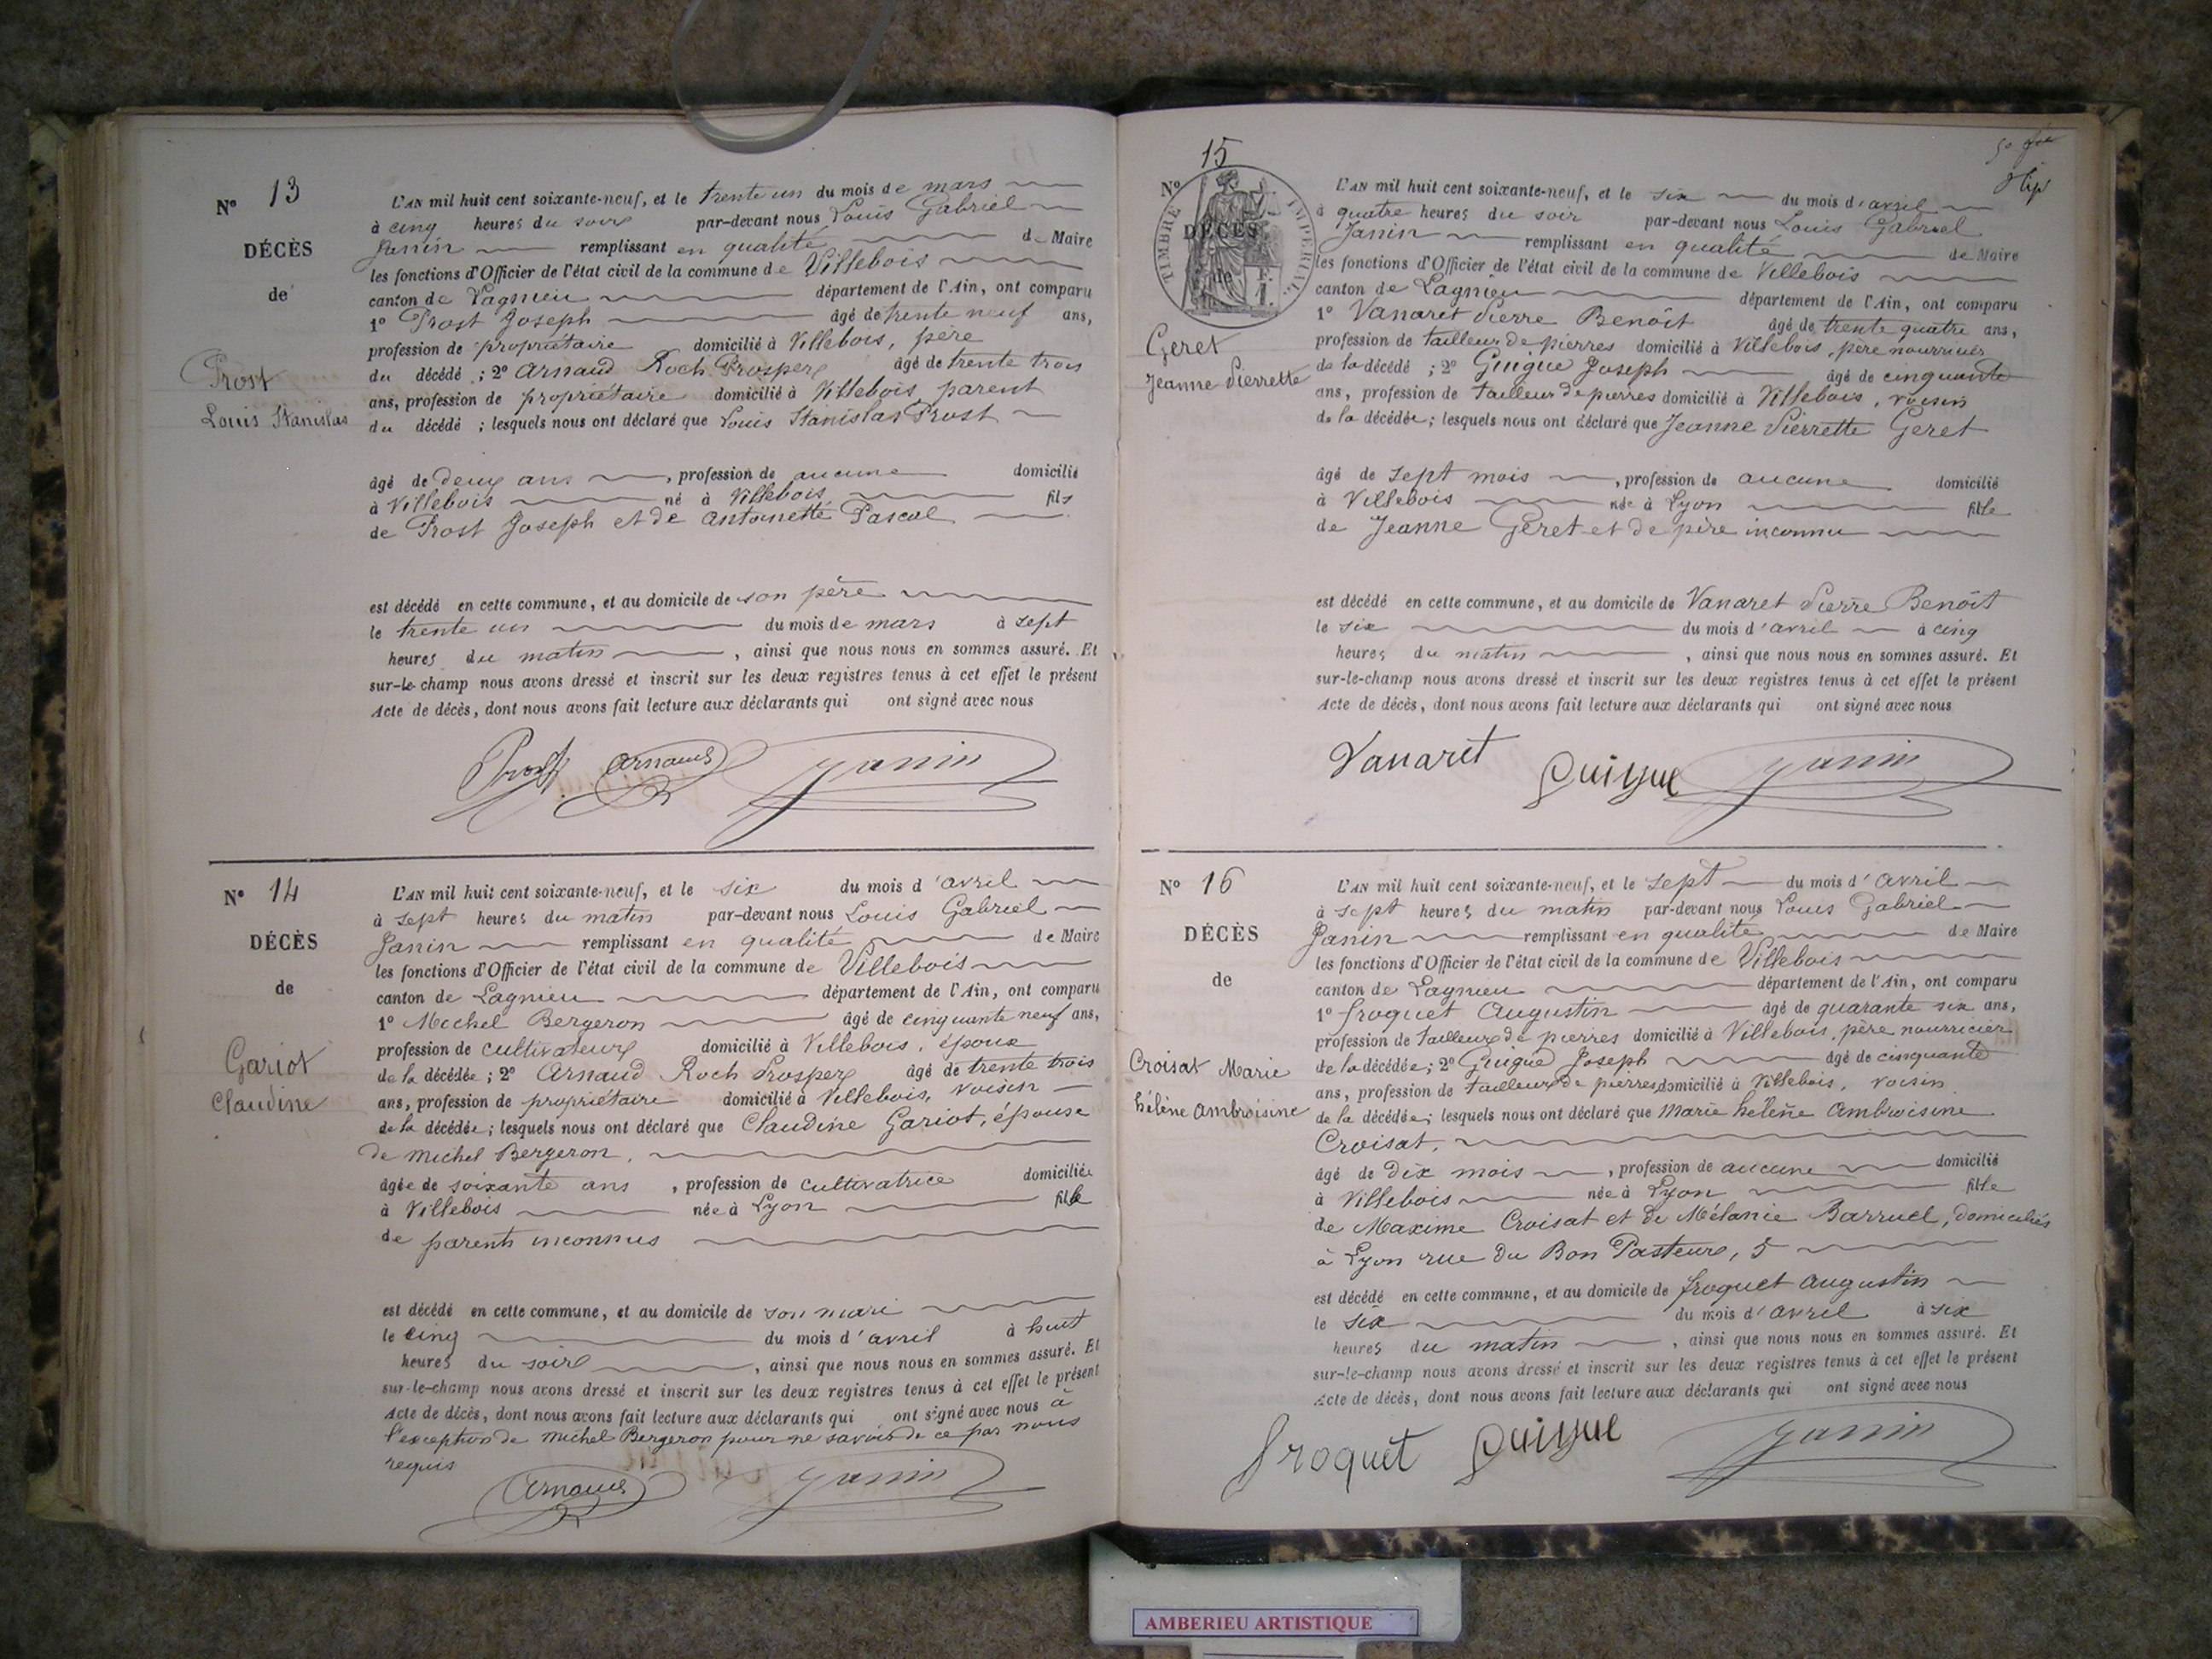 N° 13
DÉCÈS
de
Prost
Louis Stanislas
L'AN mil huit cent soixante-neuf, et le trente un du mois de mars
à cinq heures du soir par-devant nous Louis Gabriel
Janin remplissant en qualité de Maire
les fonctions d'Officier de l'état civil de la commune de Villebois
canton de Lagnieu département de l'Ain, ont comparu
1° Prost Joseph âgé de trente neuf ans,
profession de propriétaire domicilié à Villebois, père
du décédé ; 2° Arnaud Roch Prosper âgé de trente trois
ans, profession de propriétaire domicilié à Villebois, parent
du décédé ; lesquels nous ont déclaré que Louis Stanislas Prost
âgé de deux ans , profession de aucune domicilié
à Villebois né à Villebois fils
de Prost Joseph et de Antoinette Pascal
est décédé en cette commune, et au domicile de son père
le trente un du mois de mars à sept
heures du matin , ainsi que nous nous en sommes assuré. Et
sur-le-champ nous avons dressé et inscrit sur les deux registres tenus à cet effet le présent
Acte de décès, dont nous avons fait lecture aux déclarants qui ont signé avec nous
Prost Arnaud Janin
N° 14
DÉCÈS
de
Gariot
Claudine
L'AN mil huit cent soixante-neuf, et le six du mois d'avril
à sept heures du matin par-devant nous Louis Gabriel
Janin remplissant en qualité de Maire
les fonctions d'Officier de l'état civil de la commune de Villebois
canton de Lagnieu département de l'Ain, ont comparu
1° Michel Bergeron âgé de cinquante neuf ans,
profession de cultivateur domicilié à Villebois, époux
de la décédée ; 2° Arnaud Roch Prosper âgé de trente trois
ans, profession de propriétaire domicilié à Villebois, voisin
de la décédée ; lesquels nous ont déclaré que Claudine Gariot, épouse
de Michel Bergeron,
âgée de soixante ans , profession de cultivatrice domiciliée
à Villebois née à Lyon fille
de parents inconnus
est décédé en cette commune, et au domicile de son mari
le cinq du mois d'avril à huit
heures du soir , ainsi que nous nous en sommes assuré. Et
sur-le-champ nous avons dressé et inscrit sur les deux registres tenus à cet effet le présent
Acte de décès, dont nous avons fait lecture aux déclarants qui ont signé avec nous à
l'exception de Michel Bergeron pour ne savoir de ce par nous
requis
Arnaud Janin
15
N°
TIMBRE IMPERIAL
DÉCÈS
de
Geret
Jeanne Pierrette
L'AN mil huit cent soixante-neuf, et le six du mois d'avril
à quatre heures du soir par-devant nous Louis Gabriel
Janin remplissant en qualité de Maire
les fonctions d'Officier de l'état civil de la commune de Villebois
canton de Lagnieu département de l'Ain, ont comparu
1° Vanaret Pierre Benoît âgé de trente quatre ans,
profession de tailleur de pierres domicilié à Villebois, père nourricier
de la décédé ; 2° Guigue Joseph âgé de cinquante
ans, profession de tailleur de pierres domicilié à Villebois, voisin
de la décédée ; lesquels nous ont déclaré que Jeanne Pierrette Geret
âgé de sept mois , profession de aucune domicilié
à Villebois née à Lyon fille
de Jeanne Geret et de père inconnu
est décédé en cette commune, et au domicile de Vanaret Pierre Benoît
le six du mois d'avril à cinq
heures du matin , ainsi que nous nous en sommes assuré. Et
sur-le-champ nous avons dressé et inscrit sur les deux registres tenus à cet effet le présent
Acte de décès, dont nous avons fait lecture aux déclarants qui ont signé avec nous
Vanaret Guigue Janin
N° 16
DÉCÈS
de
Croisat Marie
hélène Ambroisine
L'AN mil huit cent soixante-neuf, et le sept du mois d'avril
à sept heures du matin par-devant nous Louis Gabriel
Janin remplissant en qualité de Maire
les fonctions d'Officier de l'état civil de la commune de Villebois
canton de Lagnieu département de l'Ain, ont comparu
1° froquet Augustin âgé de quarante six ans,
profession de tailleur de pierres domicilié à Villebois, père nourricier
de la décédée ; 2° Guigue Joseph âgé de cinquante
ans, profession de tailleur de pierres domicilié à Villebois, voisin
de la décédée ; lesquels nous ont déclaré que Marie hélène Ambroisine
Croisat,
âgé de dix mois , profession de aucune domicilié
à Villebois née à Lyon fille
de Maxime Croisat et de Mélanie Barruel, domiciliés
à Lyon rue du Bon Pasteur, 5
est décédé en cette commune, et au domicile de froquet Augustin
le six du mois d'avril à six
heures du matin , ainsi que nous nous en sommes assuré. Et
sur-le-champ nous avons dressé et inscrit sur les deux registres tenus à cet effet le présent
Acte de décès, dont nous avons fait lecture aux déclarants qui ont signé avec nous
froquet Guigue Janin
AMBERIEU ARTISTIQUE